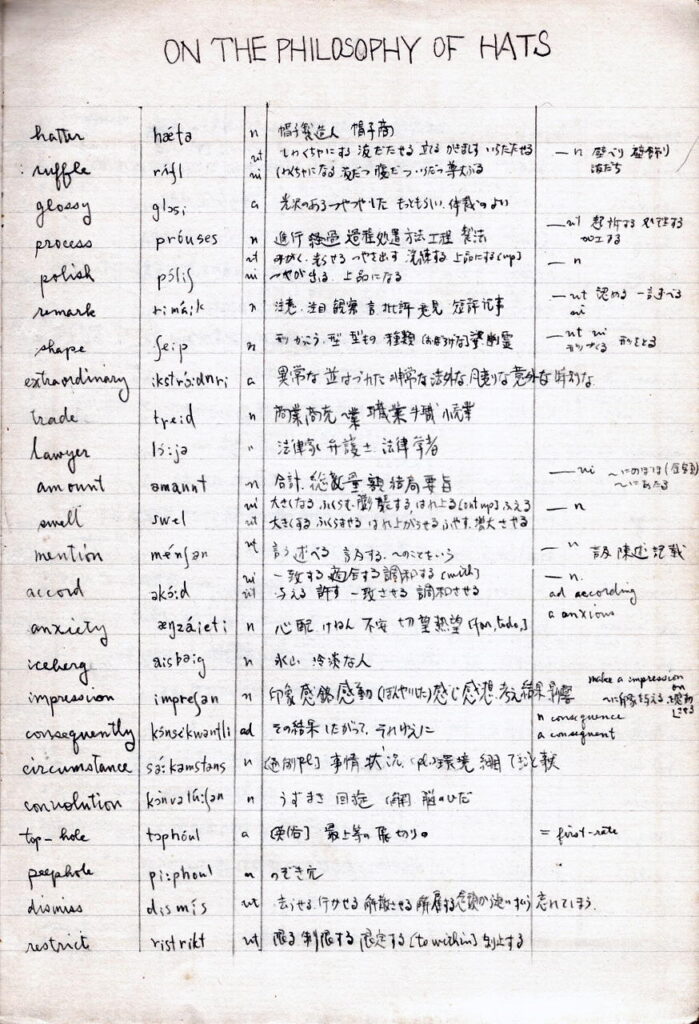 ON THE PHILOSOPHY OF HATS
hatter hǽtə n 帽子製造人 帽子商
ruffle rʌ́fl vt しわくちゃにする 波だたせる 立てる かきまわす いらだたせる — n
vi しわくちゃになる 波だつ 腹だつ いらだつ 波だち
glossy glɔsi a 光沢のある つやつやした もっともらしい 体裁のよい
process próuses n 進行 経過 過程 処置 方法 工程 製法 — vt 加工する
polish pɔ́liʃ vt みがく つやを出す 洗練する 上品にする [up] — n
vi つやが出る 上品になる
remark rimá:k n 注意 注目 観察 言 批評 意見 短評 記事 — vt 認める 一言すべる
vi
shape ʃeip n 形 かっこう 型 種類 幽霊 — vt vi
形づくる 形をとる
extraordinary ikstrɔ́:dnri a 異常な 並はずれた 非常な 法外な 意外な
trade treid n 商業 商売 職業 手職
lawyer lɔ́:jə " 法律家 弁護士 法律学者
amount əmaunt n 合計 総数 量 額 結局 要旨 — vi
swell swel vi 大きくなる ふくらむ 膨張する はれ上る [out up] ふえる — n
vt 大きくする ふくらませる はれ上がらせる ふやす 増大させる
mention ménʃən vt 言う 述べる 言及する 〜のことをいう — n 言及 陳述 記載
accord əkɔ́:d vi 一致する 適合する 調和する (with) — n.
vt 与える 許す 一致させる 調和させる ad according
anxiety æŋzáiəti n 心配 けねん 不安 切望 熱望 [for, to do,] a anxious
iceberg aisbə:g n 氷山 冷淡な人
impression impreʃən n 印象 感銘 感動 (ぼんやりした) 感じ 感想 考え 結果 影響 make a impression
on
consequently kɔ́nsékwəntli ad その結果 したがって, それゆえに n consequence
a consequent
circumstance sə́:kəmstəns n [通例pl] 事情 状況 環境 できごと
convolution kɔ̀nvəlú:ʃən n うずまき 回旋 脳のひだ
top-hole tɔphóul a [英俗] 最上等の = first-rate
peephole pi:phoul n のぞき穴
dismiss dismís vt 去らせる 行かせる 解散させる 忘れてしまう.
restrict ristríkt vt 限る 制限する 限定する [to within] 制止する